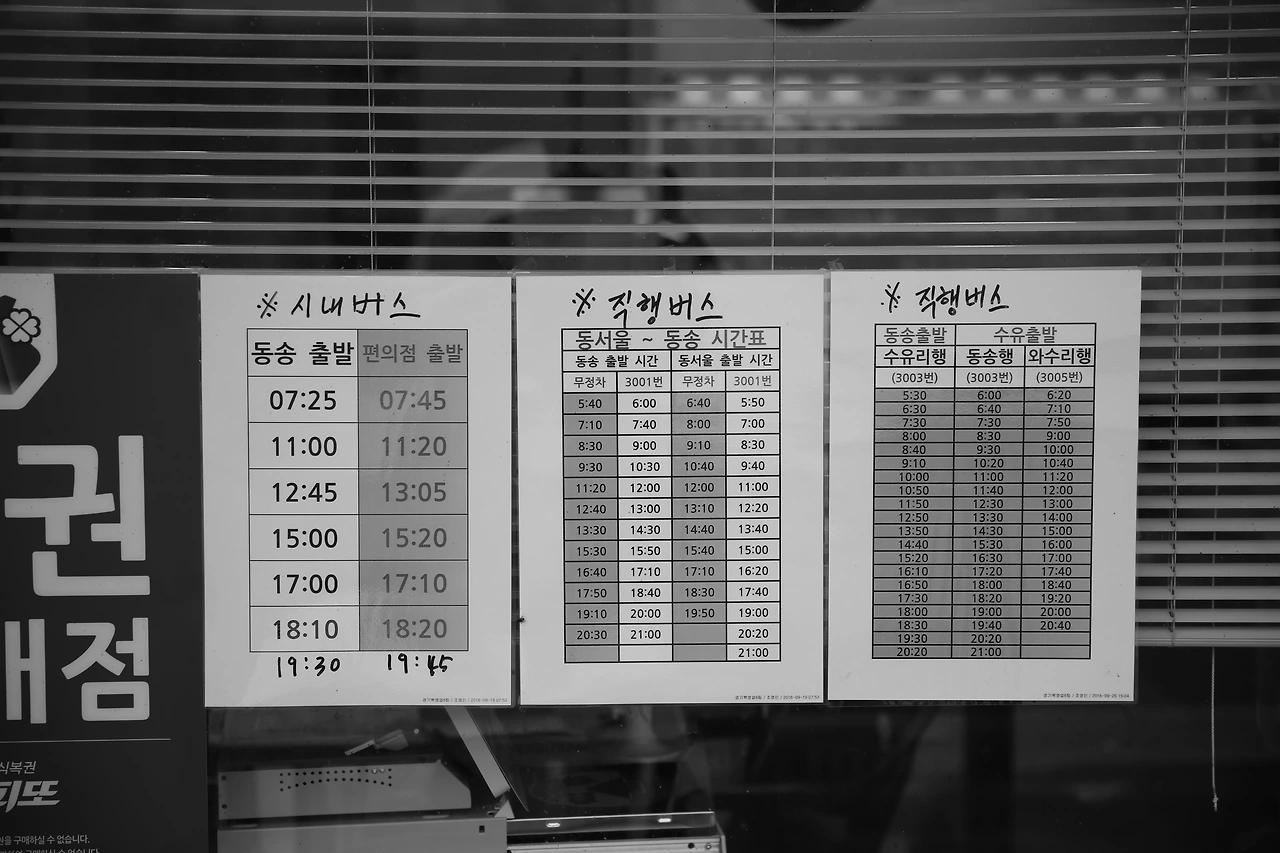 권
점
식복권
피또
구매하실 수 없습니다.
※ 시내버스
동송 출발 편의점 출발
07:25 07:45
11:00 11:20
12:45 13:05
15:00 15:20
17:00 17:10
18:10 18:20
19:30 19:45
※ 직행버스
동서울 ~ 동송 시간표
동송 출발 시간 동서울 출발 시간
무정차 3001번 무정차 3001번
5:40 6:00 6:40 5:50
7:10 7:40 8:00 7:00
8:30 9:00 9:10 8:30
9:30 10:30 10:40 9:40
11:20 12:00 12:00 11:00
12:40 13:00 13:10 12:20
13:30 14:30 14:40 13:40
15:30 15:50 15:40 15:00
16:40 17:10 17:10 16:20
17:50 18:40 18:30 17:40
19:10 20:00 19:50 19:00
20:30 21:00 20:20
21:00
※ 직행버스
동송출발 수유출발
수유리행 동송행 와수리행
(3003번) (3003번) (3005번)
5:30 6:00 6:20
6:30 6:40 7:10
7:30 7:30 7:50
8:00 8:30 9:00
8:40 9:30 10:00
9:10 10:20 10:40
10:00 11:00 11:20
10:50 11:40 12:00
11:50 12:30 13:00
12:50 13:30 14:00
13:50 14:30 15:00
14:40 15:30 16:00
15:20 16:30 17:00
16:10 17:20 17:40
16:50 18:00 18:40
17:30 18:20 19:20
18:00 19:00 20:00
18:30 19:40 20:40
19:30 20:20
20:20 21:00